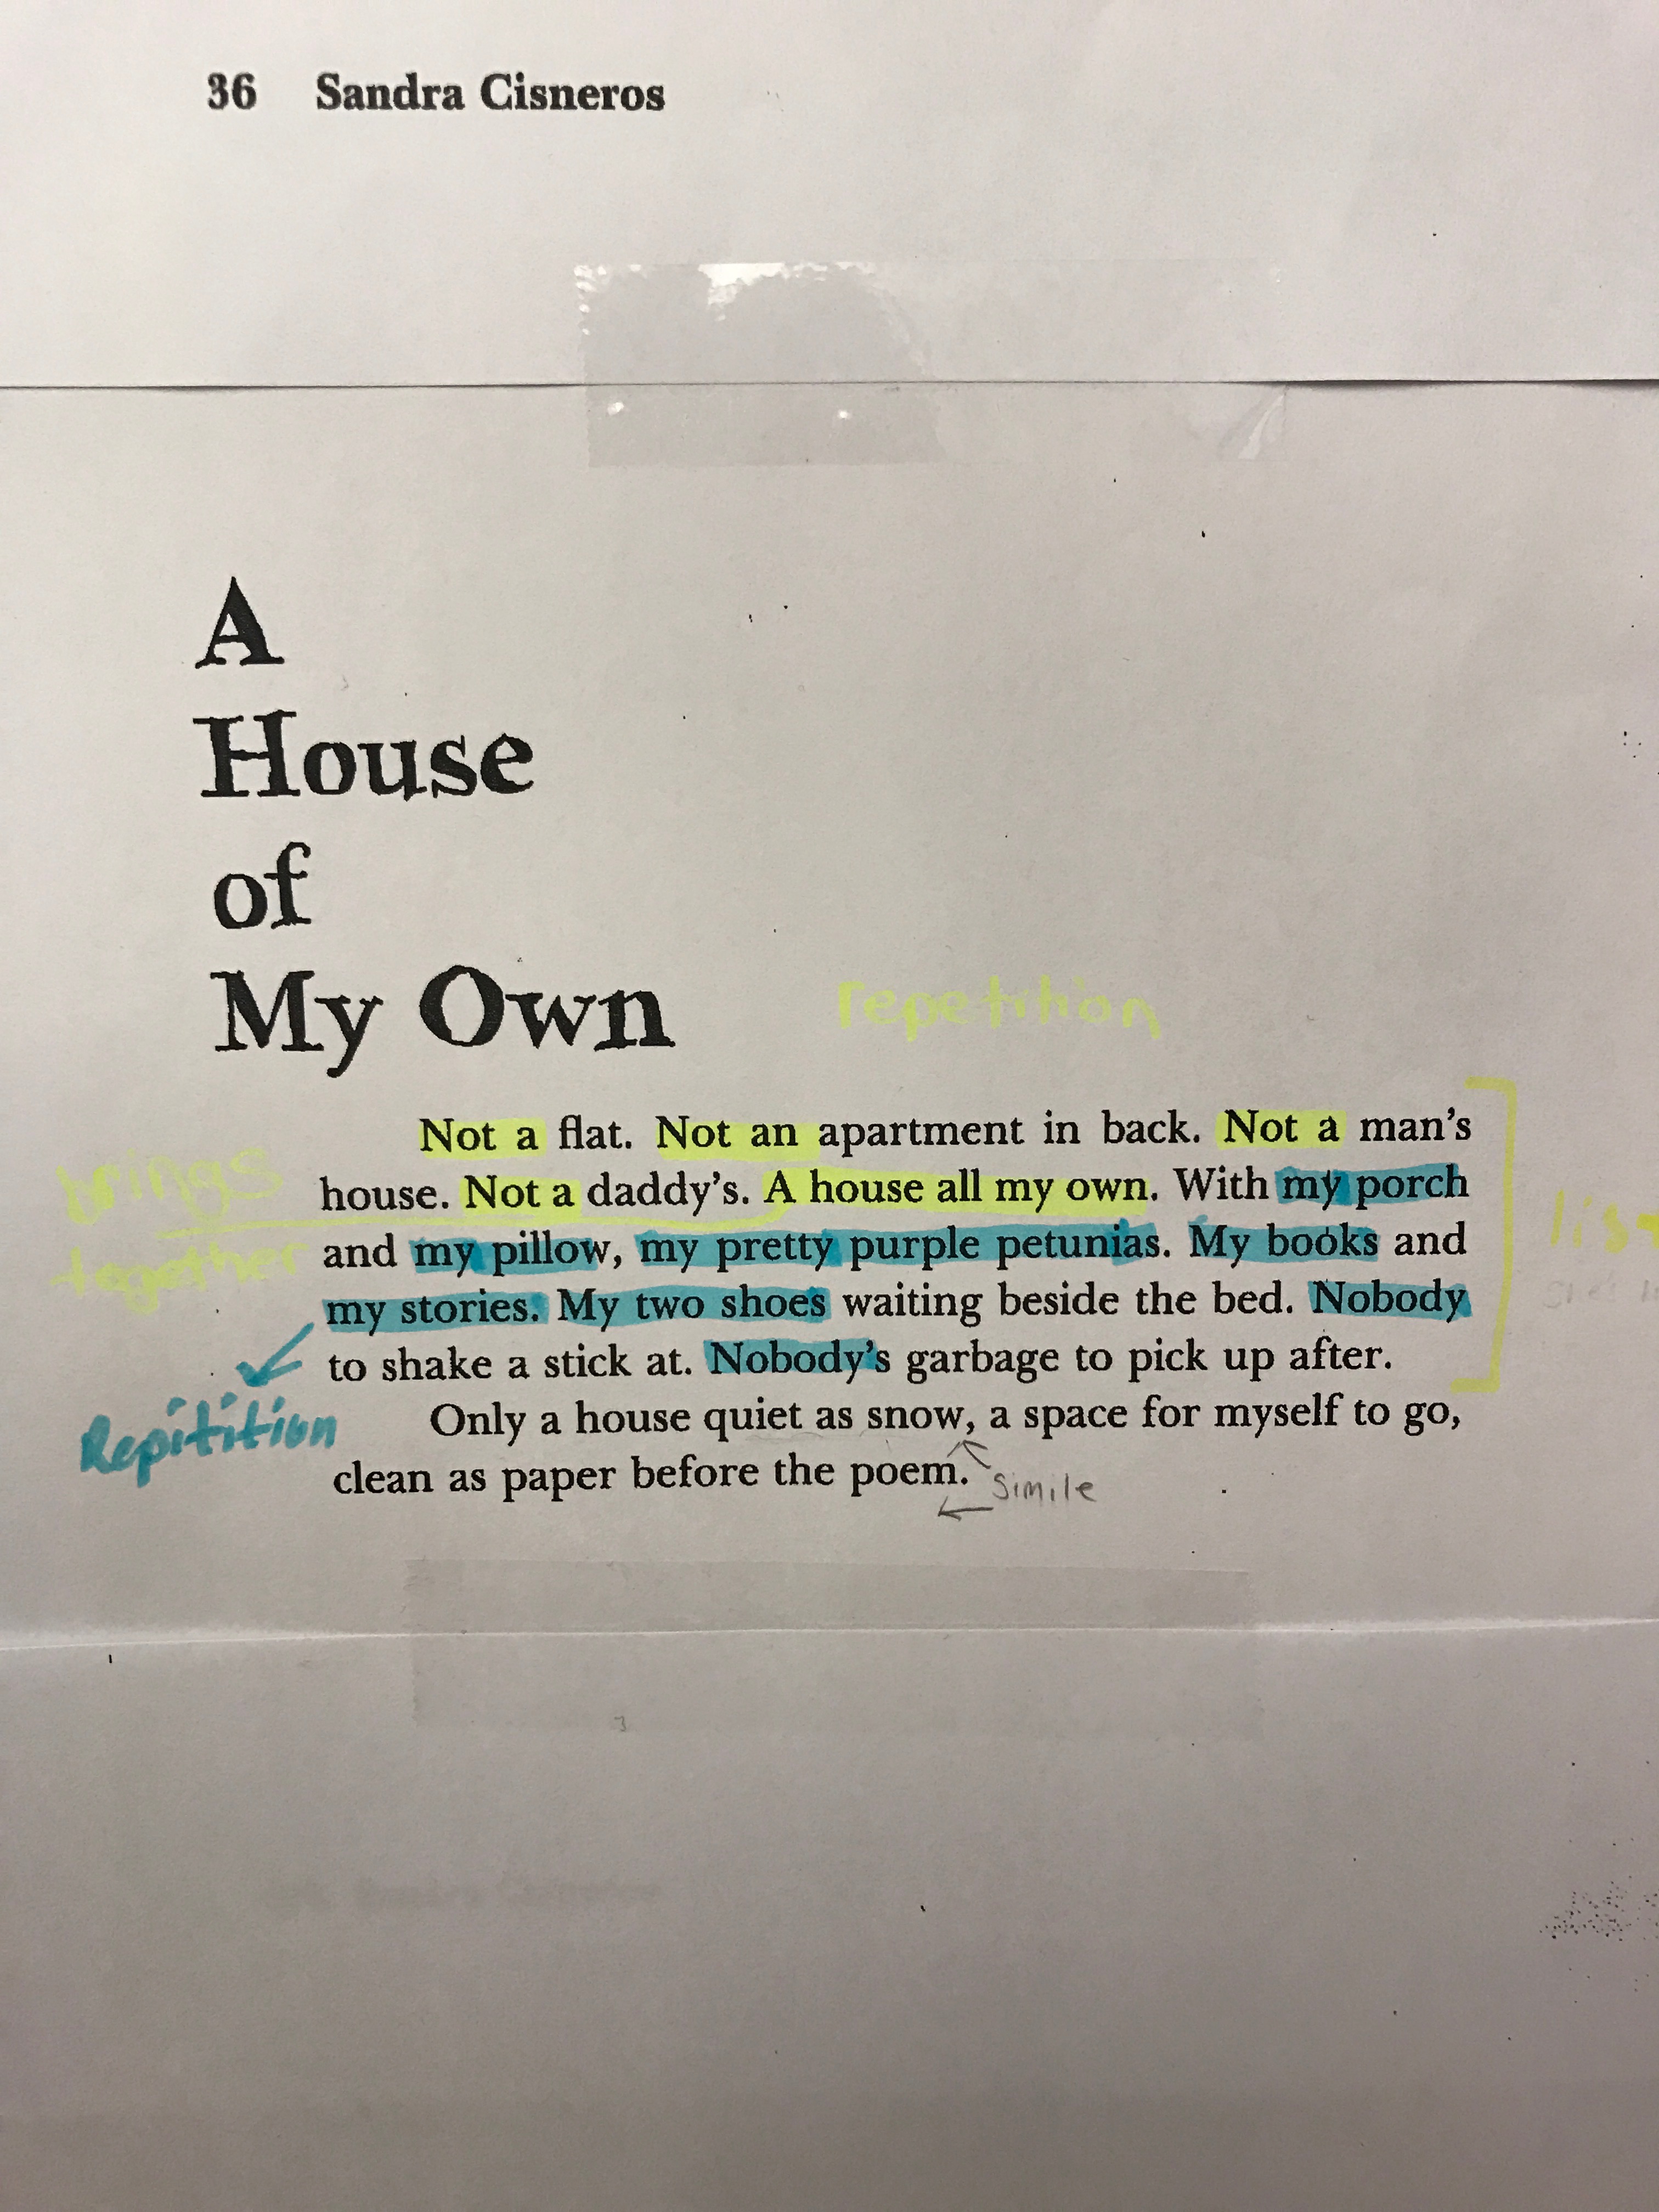 36 Sandra Cisneros
A
House
of
My Own
repetition
Not a flat. Not an apartment in back. Not a man's
house. Not a daddy's. A house all my own. With my porch
and my pillow, my pretty purple petunias. My books and
my stories. My two shoes waiting beside the bed. Nobody
to shake a stick at. Nobody's garbage to pick up after.
Only a house quiet as snow, a space for myself to go,
clean as paper before the poem.
brings
together
list
Repitition
Simile